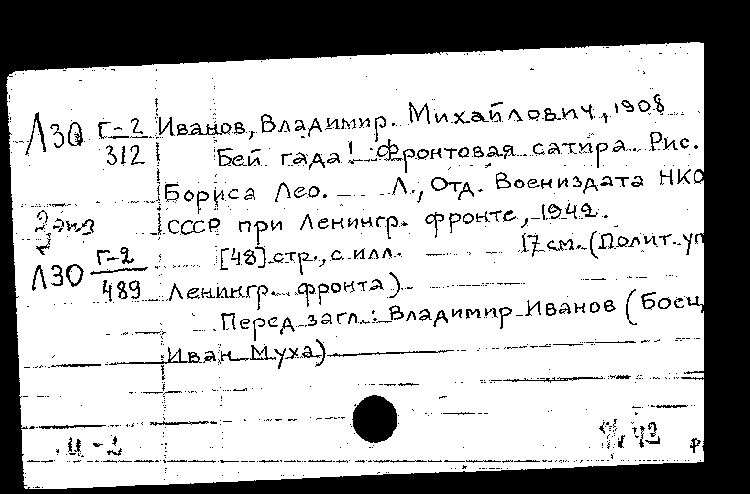 Л30 Г-2 Иванов, Владимир. Михайлович, 1908
312 Бей гада! Фронтовая сатира. Рис.
Бориса Лео. — Л., Отд. Воениздата НКО
2 экз СССР при Ленингр. фронте, 1942.
Л30 Г-2 [48] стр., с илл. 17 см. (Полит. уп
489 Ленингр. фронта)
Перед загл.: Владимир Иванов (Боец,
Иван Муха)
И-2